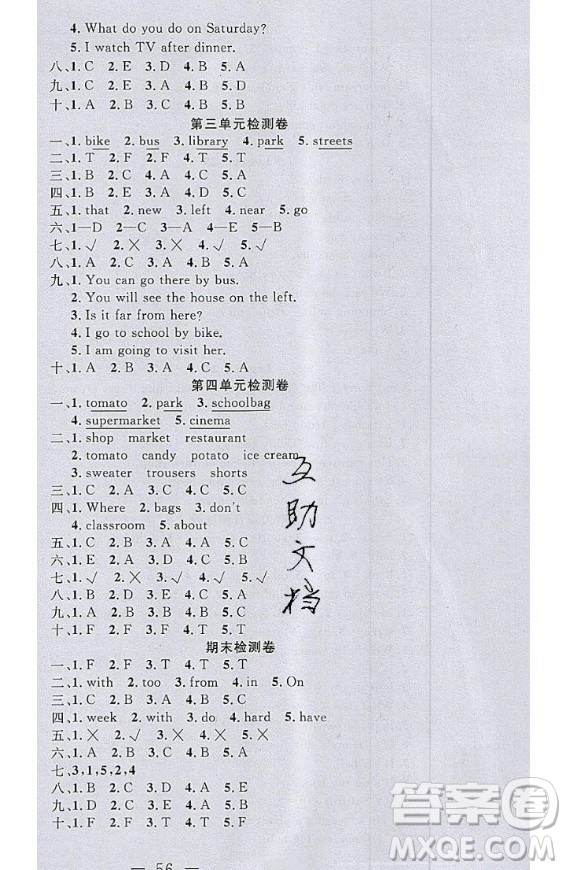 4. What do you do on Saturday?
5. I watch TV after dinner.
八、1. C 2. E 3. D 4. B 5. A
九、1. C 2. E 3. A 4. B 5. D
十、1. A 2. B 3. C 4. B 5. B
第三单元检测卷
一、1. bike 2. bus 3. library 4. park 5. streets
二、1. T 2. F 3. F 4. T 5. T
三、1. B 2. C 3. A 4. B 5. C
四、1. B 2. E 3. A 4. D 5. C
五、1. that 2. new 3. left 4. near 5. go
六、1—D 2—C 3—B 4—E 5—A
七、1. √ 2. X 3. X 4. √ 5. √
八、1. A 2. C 3. B 4. A 5. C
九、1. You can go there by bus.
2. You will see the house on the left.
3. Is it far from here?
4. I go to school by bike.
5. I am going to visit her.
十、1. B 2. B 3. C 4. B 5. A
第四单元检测卷
一、1. tomato 2. park 3. schoolbag
4. supermarket 5. cinema
二、1. shop market restaurant
2. tomato candy potato ice cream
3. sweater trousers shorts
三、1. C 2. A 3. C 4. B 5. A
四、1. Where 2. bags 3. don't
4. classroom 5. about
五、1. C 2. A 3. C 4. B 5. C
六、1. E 2. A 3. D 4. B 5. C
七、1. √ 2. X 3. √ 4. X 5. √
八、1. B 2. D 3. A 4. E 5. C
九、1. A 2. C 3. B 4. C 5. B
十、1. F 2. F 3. F 4. T 5. T
期末检测卷
一、1. F 2. F 3. T 4. T 5. T
二、1. with 2. too 3. from 4. in 5. On
三、1. B 2. C 3. A 4. A 5. C
四、1. week 2. with 3. do 4. hard 5. have
五、1. X 2. √ 3. X 4. X 5. X
六、1. A 2. B 3. C 4. B 5. C
七、3,1,5,2,4
八、1. D 2. C 3. B 4. A 5. E
九、1. D 2. C 3. A 4. B 5. E
十、1. B 2. B 3. A 4. B 5. A
— 56 —
互助文档
答案卷
MXQE.COM